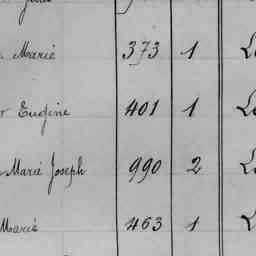 Marié 373 1
Eugène 401 1
Marié Joseph 990 2
Marié 463 1